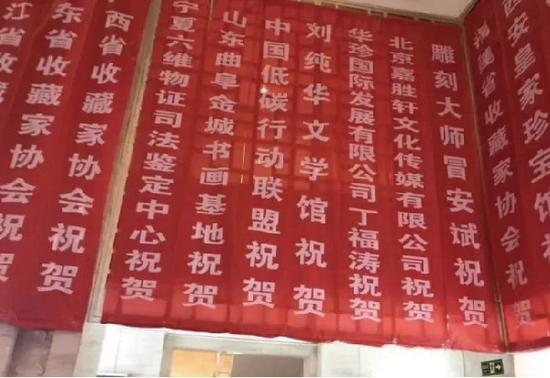 江省收藏家协会祝贺
东省收藏家协会祝贺
西省收藏家协会祝贺
宁夏六维物证司法鉴定中心祝贺
山东曲阜金城书画基地祝贺
中国低碳行动联盟祝贺
刘纯华文学馆祝贺
华珍国际发展有限公司丁福涛祝贺
北京嘉胜轩文化传媒有限公司祝贺
雕刻大师冒安斌祝贺
福建省收藏家协会祝贺
西安皇家珍宝馆祝贺